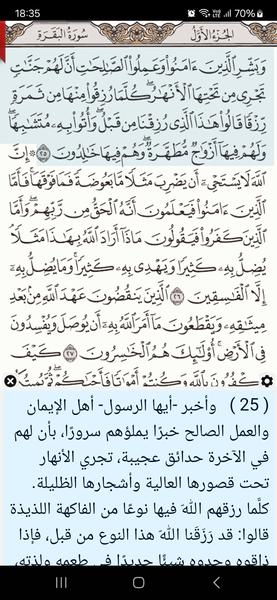 18:35 70%
الجزء الأول سورة البقرة
وَبَشِّرِ الَّذِينَ ءَامَنُوا وَعَمِلُوا الصَّالِحَاتِ أَنَّ لَهُمْ جَنَّاتٍ
تَجْرِي مِن تَحْتِهَا الْأَنْهَارُ كُلَّمَا رُزِقُوا مِنْهَا مِن ثَمَرَةٍ
رِّزْقًا قَالُوا هَٰذَا الَّذِي رُزِقْنَا مِن قَبْلُ وَأُتُوا بِهِ مُتَشَابِهًا
وَلَهُمْ فِيهَا أَزْوَاجٌ مُّطَهَّرَةٌ وَهُمْ فِيهَا خَالِدُونَ ٢٥ إِنَّ
اللَّهَ لَا يَسْتَحْيِي أَن يَضْرِبَ مَثَلًا مَّا بَعُوضَةً فَمَا فَوْقَهَا فَأَمَّا
الَّذِينَ ءَامَنُوا فَيَعْلَمُونَ أَنَّهُ الْحَقُّ مِن رَّبِّهِمْ وَأَمَّا
الَّذِينَ كَفَرُوا فَيَقُولُونَ مَاذَا أَرَادَ اللَّهُ بِهَٰذَا مَثَلًا
يُضِلُّ بِهِ كَثِيرًا وَيَهْدِي بِهِ كَثِيرًا وَمَا يُضِلُّ بِهِ
إِلَّا الْفَاسِقِينَ ٢٦ الَّذِينَ يَنقُضُونَ عَهْدَ اللَّهِ مِن بَعْدِ
مِيثَاقِهِ وَيَقْطَعُونَ مَا أَمَرَ اللَّهُ بِهِ أَن يُوصَلَ وَيُفْسِدُونَ
فِي الْأَرْضِ أُولَٰئِكَ هُمُ الْخَاسِرُونَ ٢٧ كَيْفَ
تَكْفُرُونَ بِاللَّهِ وَكُنتُمْ أَمْوَاتًا فَأَحْيَاكُمْ ثُمَّ يُمِيتُ
( 25 ) وأخبر -أيها الرسول- أهل الإيمان
والعمل الصالح خبرًا يملؤهم سرورًا، بأن لهم
في الآخرة حدائق عجيبة، تجري الأنهار
تحت قصورها العالية وأشجارها الظليلة.
كلَّما رزقهم الله فيها نوعًا من الفاكهة اللذيذة
قالوا: قد رَزَقَنا الله هذا النوع من قبل، فإذا
ذاقوه وجدوه شيئًا جديدًا في طعمه ولذته،